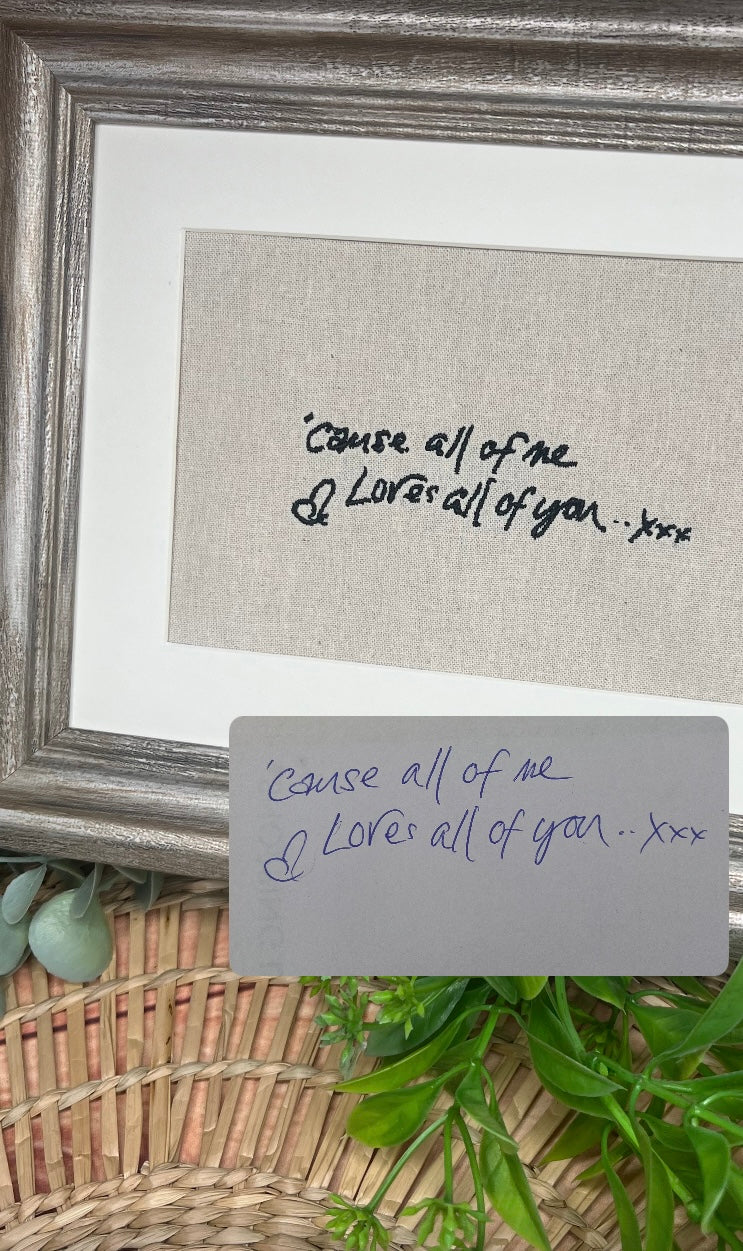 'cause all of me
Loves all of you..xxx
'cause all of me
Loves all of you..xxx